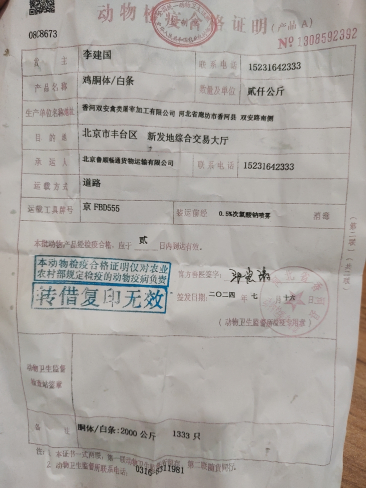 动物检疫合格证明(产品A)
0808673
№ 1308592332
货 主 李建国 联系电话 15231642333
产品名称 鸡胴体/白条 数量及单位 贰仟公斤
生产单位名称地址 香河双安禽类屠宰加工有限公司 河北省廊坊市香河县 双安路南侧
目的地 北京市丰台区 新发地综合交易大厅
承运人 北京鲁顺畅通货物运输有限公司 联系电话 15231642333
运载方式 道路
运载工具牌号 京FBD555 0.5%次氯酸钠喷雾 消毒
本批动物产品经检疫合格,应于 贰 日内到达有效。
本动物检疫合格证明仅对农业
农村部规定检疫的动物疫病负责
转借复印无效
官方兽医签字:
签发日期:二〇二四 年 七 月 十六 日
(动物卫生监督所检疫专用章)
动物卫生监督
检查站签章
备 注 胴体/白条:2000公斤 1333 只
注:1. 本证书一式两联,第一联
2. 动物卫生监督所联系电话:0316-8311981